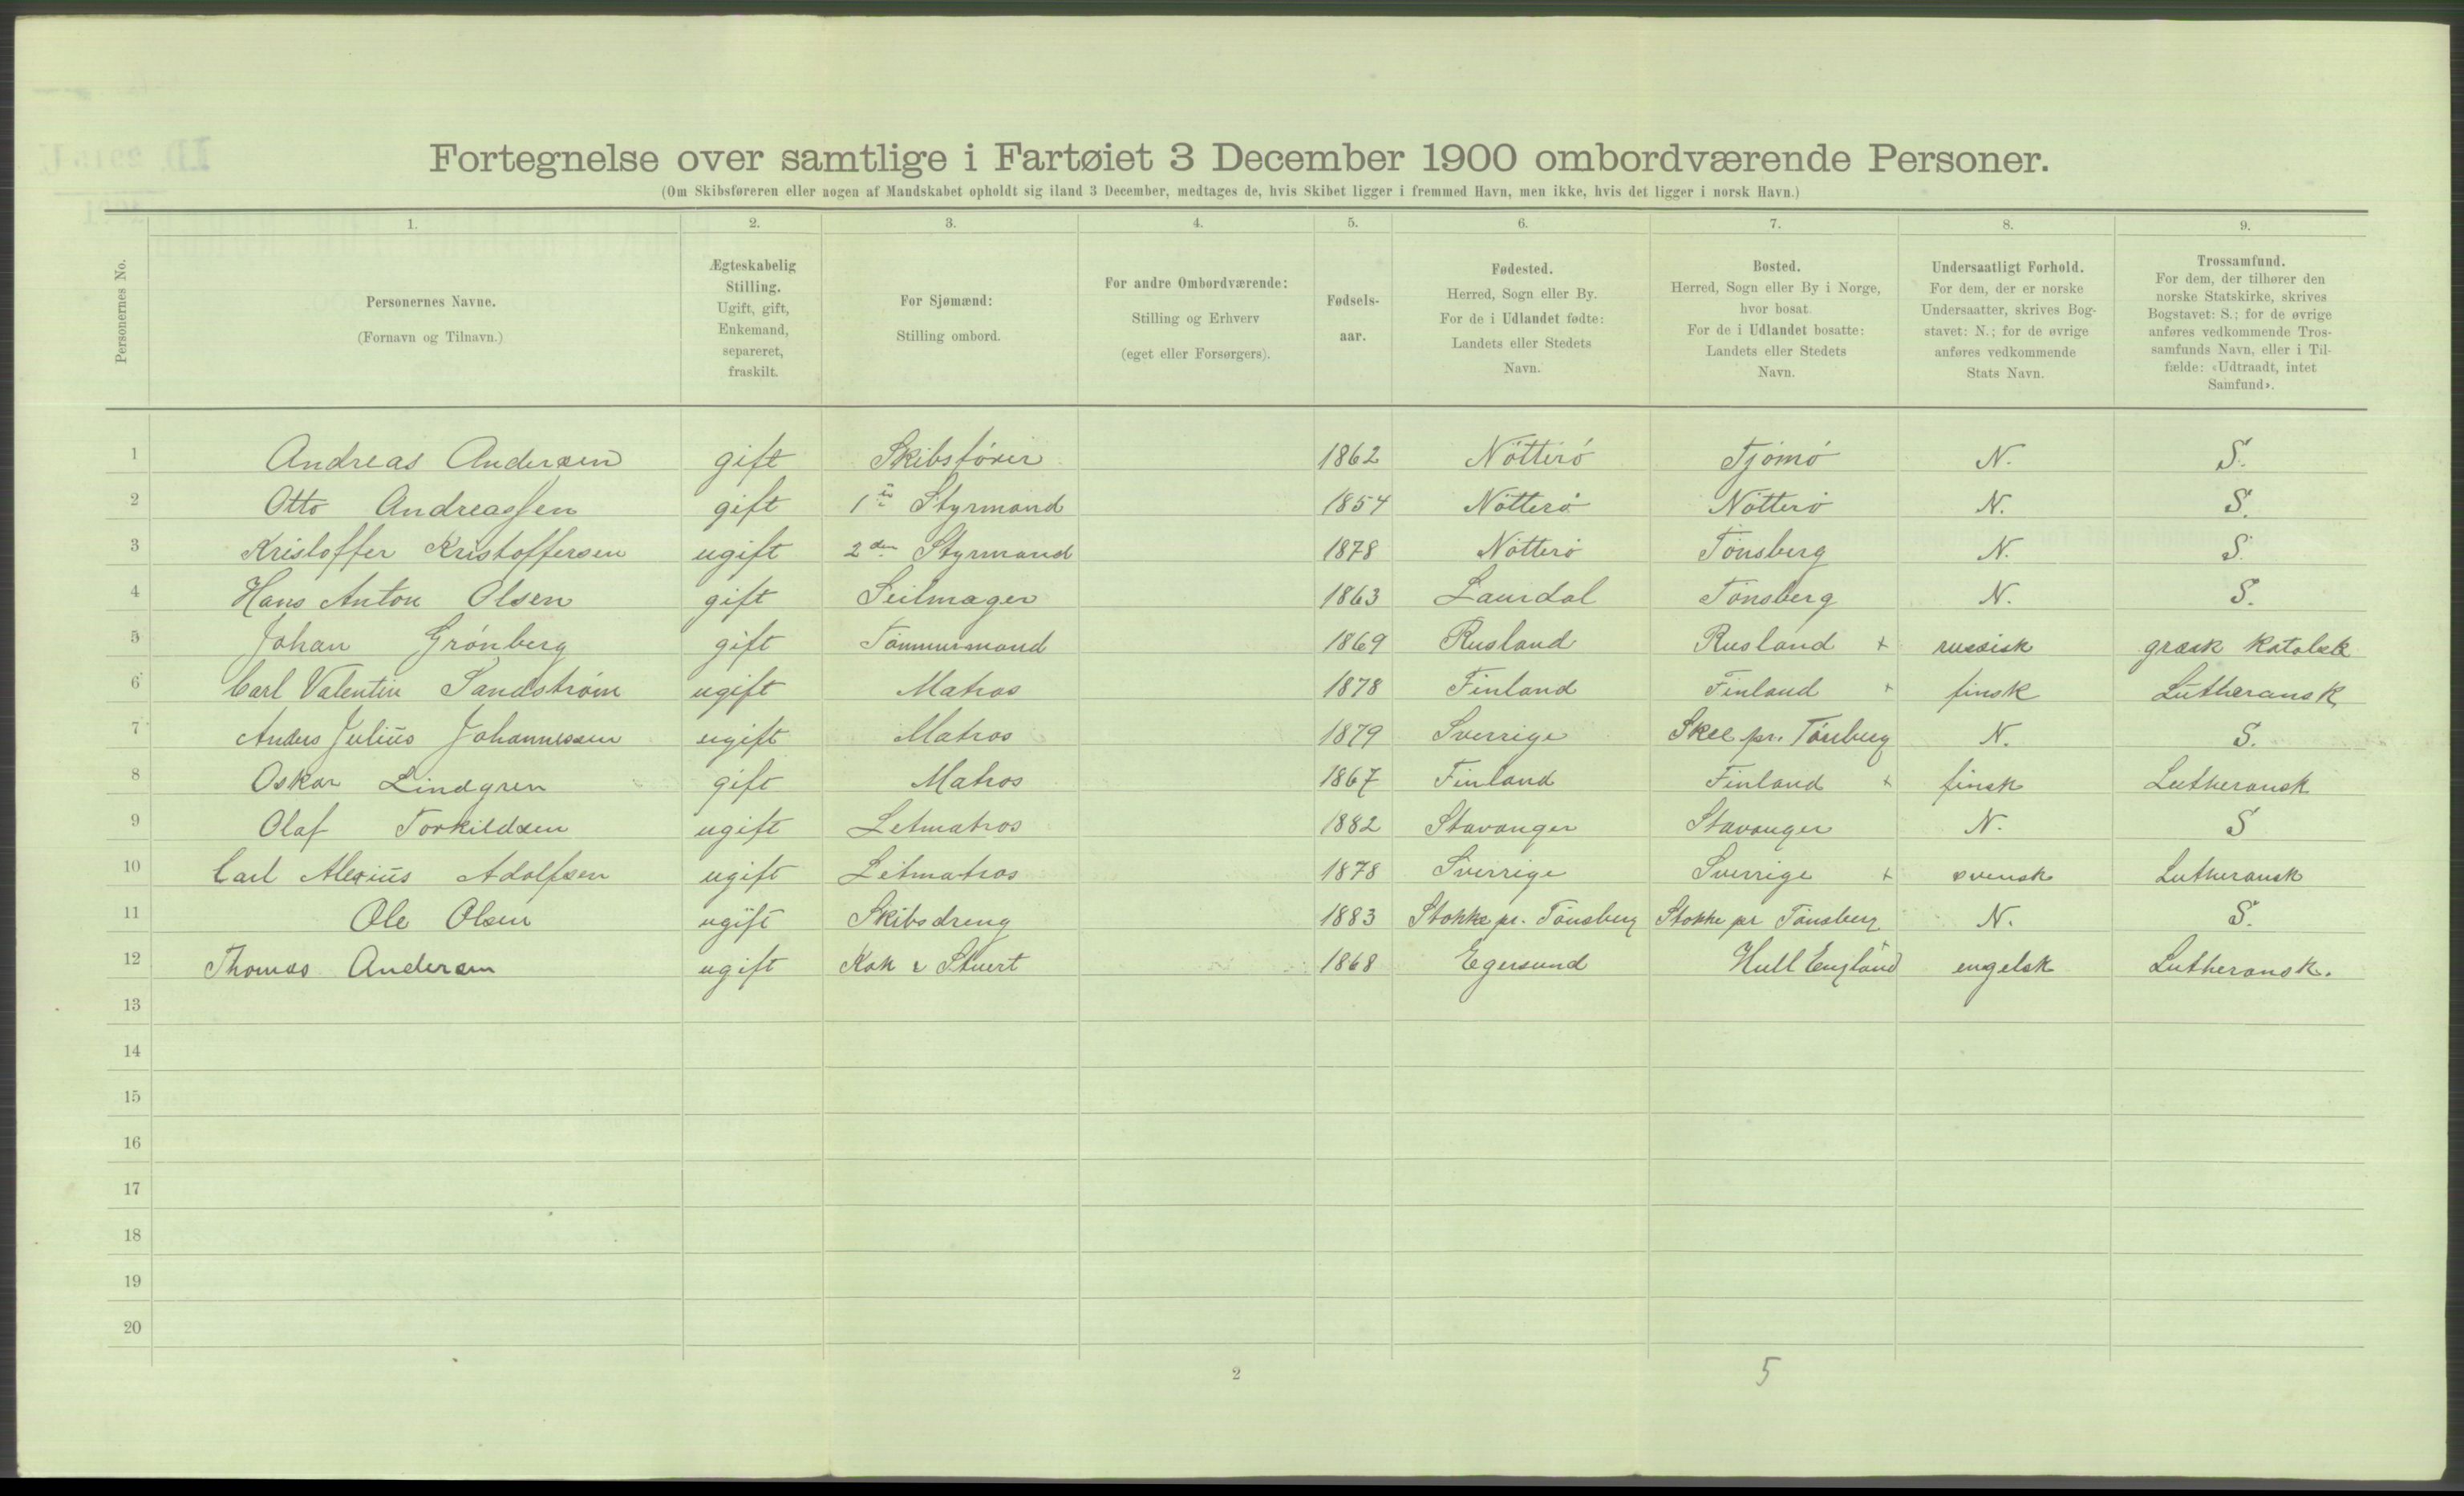 Fortegnelse over samtlige i Fartøiet 3 December 1900 ombordværende Personer.
(Om Skibsføreren eller nogen af Mandskabet opholdt sig iland 3 December, medtages de, hvis Skibet ligger i fremmed Havn, men ikke, hvis det ligger i norsk Havn.)
Personernes No.
1. 2. 3. 4. 5. 6. 7. 8. 9.
Personernes Navne.
(Fornavn og Tilnavn.)
Ægteskabelig
Stilling.
Ugift, gift,
Enkemand,
separeret,
fraskilt.
For Sjømænd:
Stilling ombord.
For andre Ombordværende:
Stilling og Erhverv
(eget eller Forsørgers).
Fødsels-
aar.
Fødested.
Herred, Sogn eller By.
For de i Udlandet fødte:
Landets eller Stedets
Navn.
Bosted.
Herred, Sogn eller By i Norge,
hvor bosat.
For de i Udlandet bosatte:
Landets eller Stedets
Navn.
Undersaatligt Forhold.
For dem, der er norske
Undersaatter, skrives Bog-
stavet: N.; for de øvrige
anføres vedkommende
Stats Navn.
Trossamfund.
For dem, der tilhører den
norske Statskirke, skrives
Bogstavet: S.; for de øvrige
anføres vedkommende Tros-
samfunds Navn, eller i Til-
fælde: «Udtraadt, intet
Samfund».
1 Andreas Andersen gift Skibsfører 1862 Nötterö Tjömö N. S.
2 Otto Andreassen gift 1ste Styrmand 1854 Nötterö Nötterö N. S.
3 Kristoffer Kristoffersen ugift 2den Styrmand 1878 Nötterö Tönsberg N. S.
4 Hans Anton Olsen gift Seilmager 1863 Laurdal Tönsberg N. S.
5 Johan Grönberg gift Tömmermand 1869 Rusland Rusland + russisk græsk katolsk
6 Carl Valentin Sandström ugift Matros 1878 Finland Finland + finsk Lutheransk
7 Anders Julius Johannessen ugift Matros 1879 Sverrige Skee pr. Tönsberg N. S.
8 Oskar Lindgren gift Matros 1867 Finland Finland + finsk Lutheransk
9 Olaf Torkildsen ugift Letmatros 1882 Stavanger Stavanger N. S
10 Carl Alexius Adolfsen ugift Letmatros 1878 Sverrige Sverrige + svensk Lutheransk
11 Ole Olsen ugift Skibsdreng 1883 Stokke pr. Tönsberg Stokke pr Tönsberg N. S.
12 Thomas Andersen ugift Kok & Stuert 1868 Egersund Hull England engelsk Lutheransk.
13
14
15
16
17
18
19
20
2 5